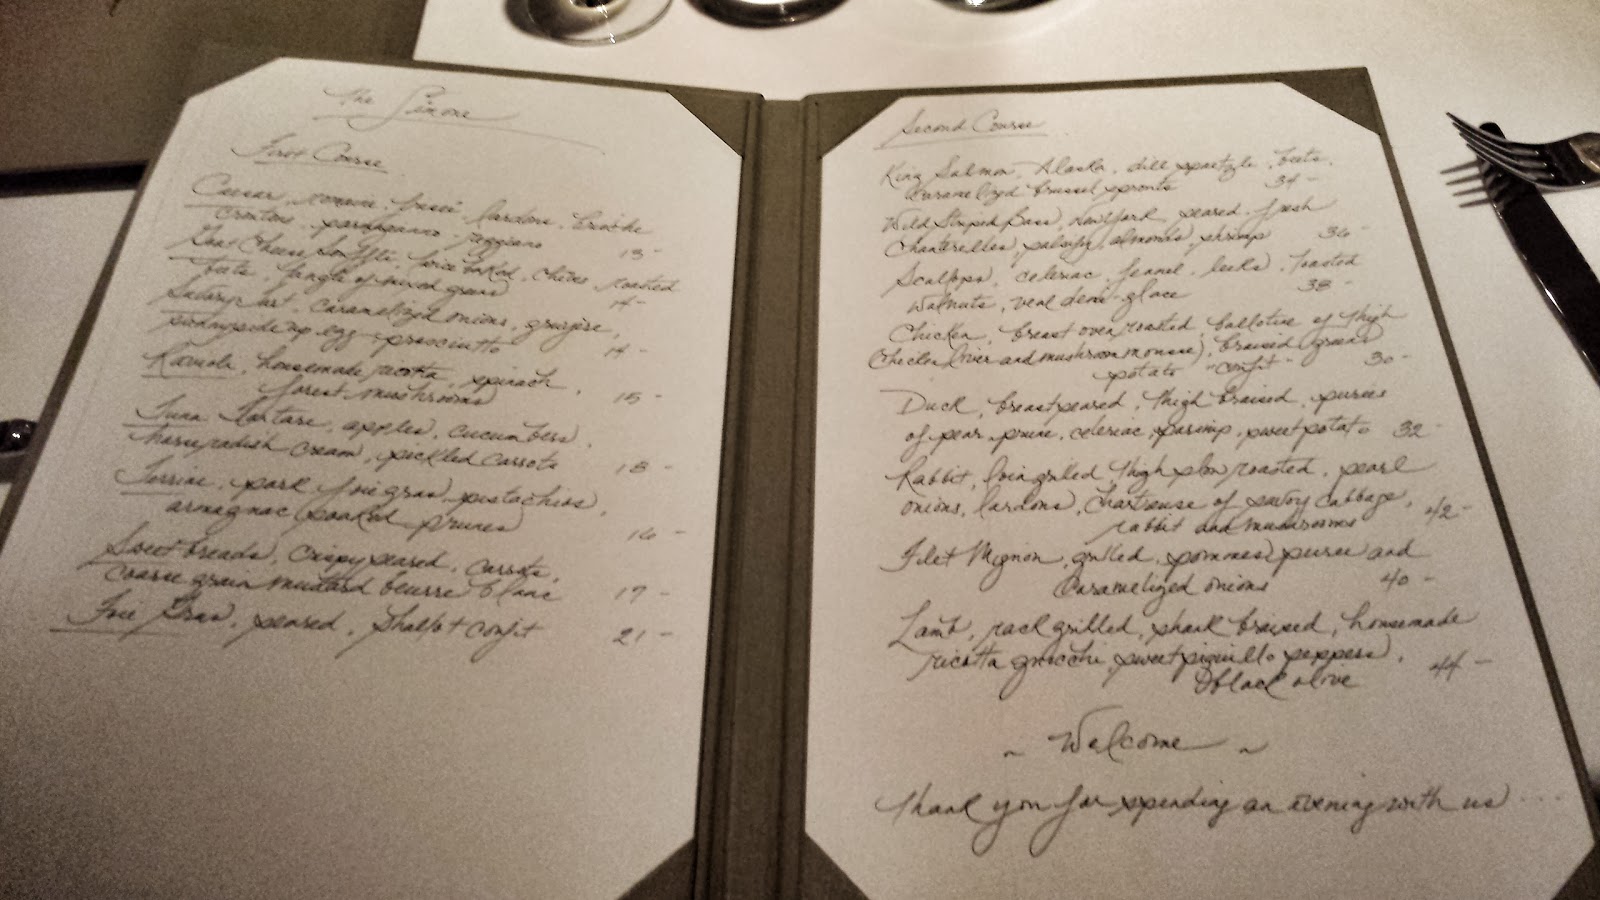 The Simone
First Course
Caesar, romaine, frisée, lardons, brioche
croutons, parmigiano-reggiano 13-
Goat Cheese Soufflé, twice baked, chives, roasted
beets, tangle of mixed greens 14-
Savory Tart, caramelized onions, gruyère,
sunnyside up egg, prosciutto 14-
Ravioli, homemade ricotta, spinach,
forest mushrooms 15-
Tuna Tartare, apples, cucumbers,
horseradish cream, pickled carrots 18-
Terrine, pork, foie gras, pistachios,
armagnac soaked prunes 16-
Sweetbreads, crispy seared, carrots,
coarse grain mustard beurre blanc 17-
Foie Gras, seared, shallot confit 21-
Second Course
King Salmon, Alaska, dill spaetzle, beets,
caramelized brussel sprouts 34-
Wild Striped Bass, New York, seared, fresh
Chanterelles, salsify, almonds, shrimp 36-
Scallops, celeriac, fennel, leeks, toasted
walnuts, veal demi-glace 38-
Chicken, breast oven roasted, ballotine of thigh
(chicken liver and mushroom mousse), braised greens
potato "confit" 30-
Duck, breast seared, thigh braised, purées
of pear, prune, celeriac, parsnip, sweet potato 32-
Rabbit, loin grilled, thigh slow roasted, pearl
onions, lardons, chartreuse of savoy cabbage,
rabbit and mushrooms 42-
Filet Mignon, grilled, pommes purée and
caramelized onions 40-
Lamb, rack grilled, shank braised, homemade
ricotta gnocchi, sweet piquillo peppers,
black olive 44-
~ Welcome ~
Thank you for spending an evening with us ...